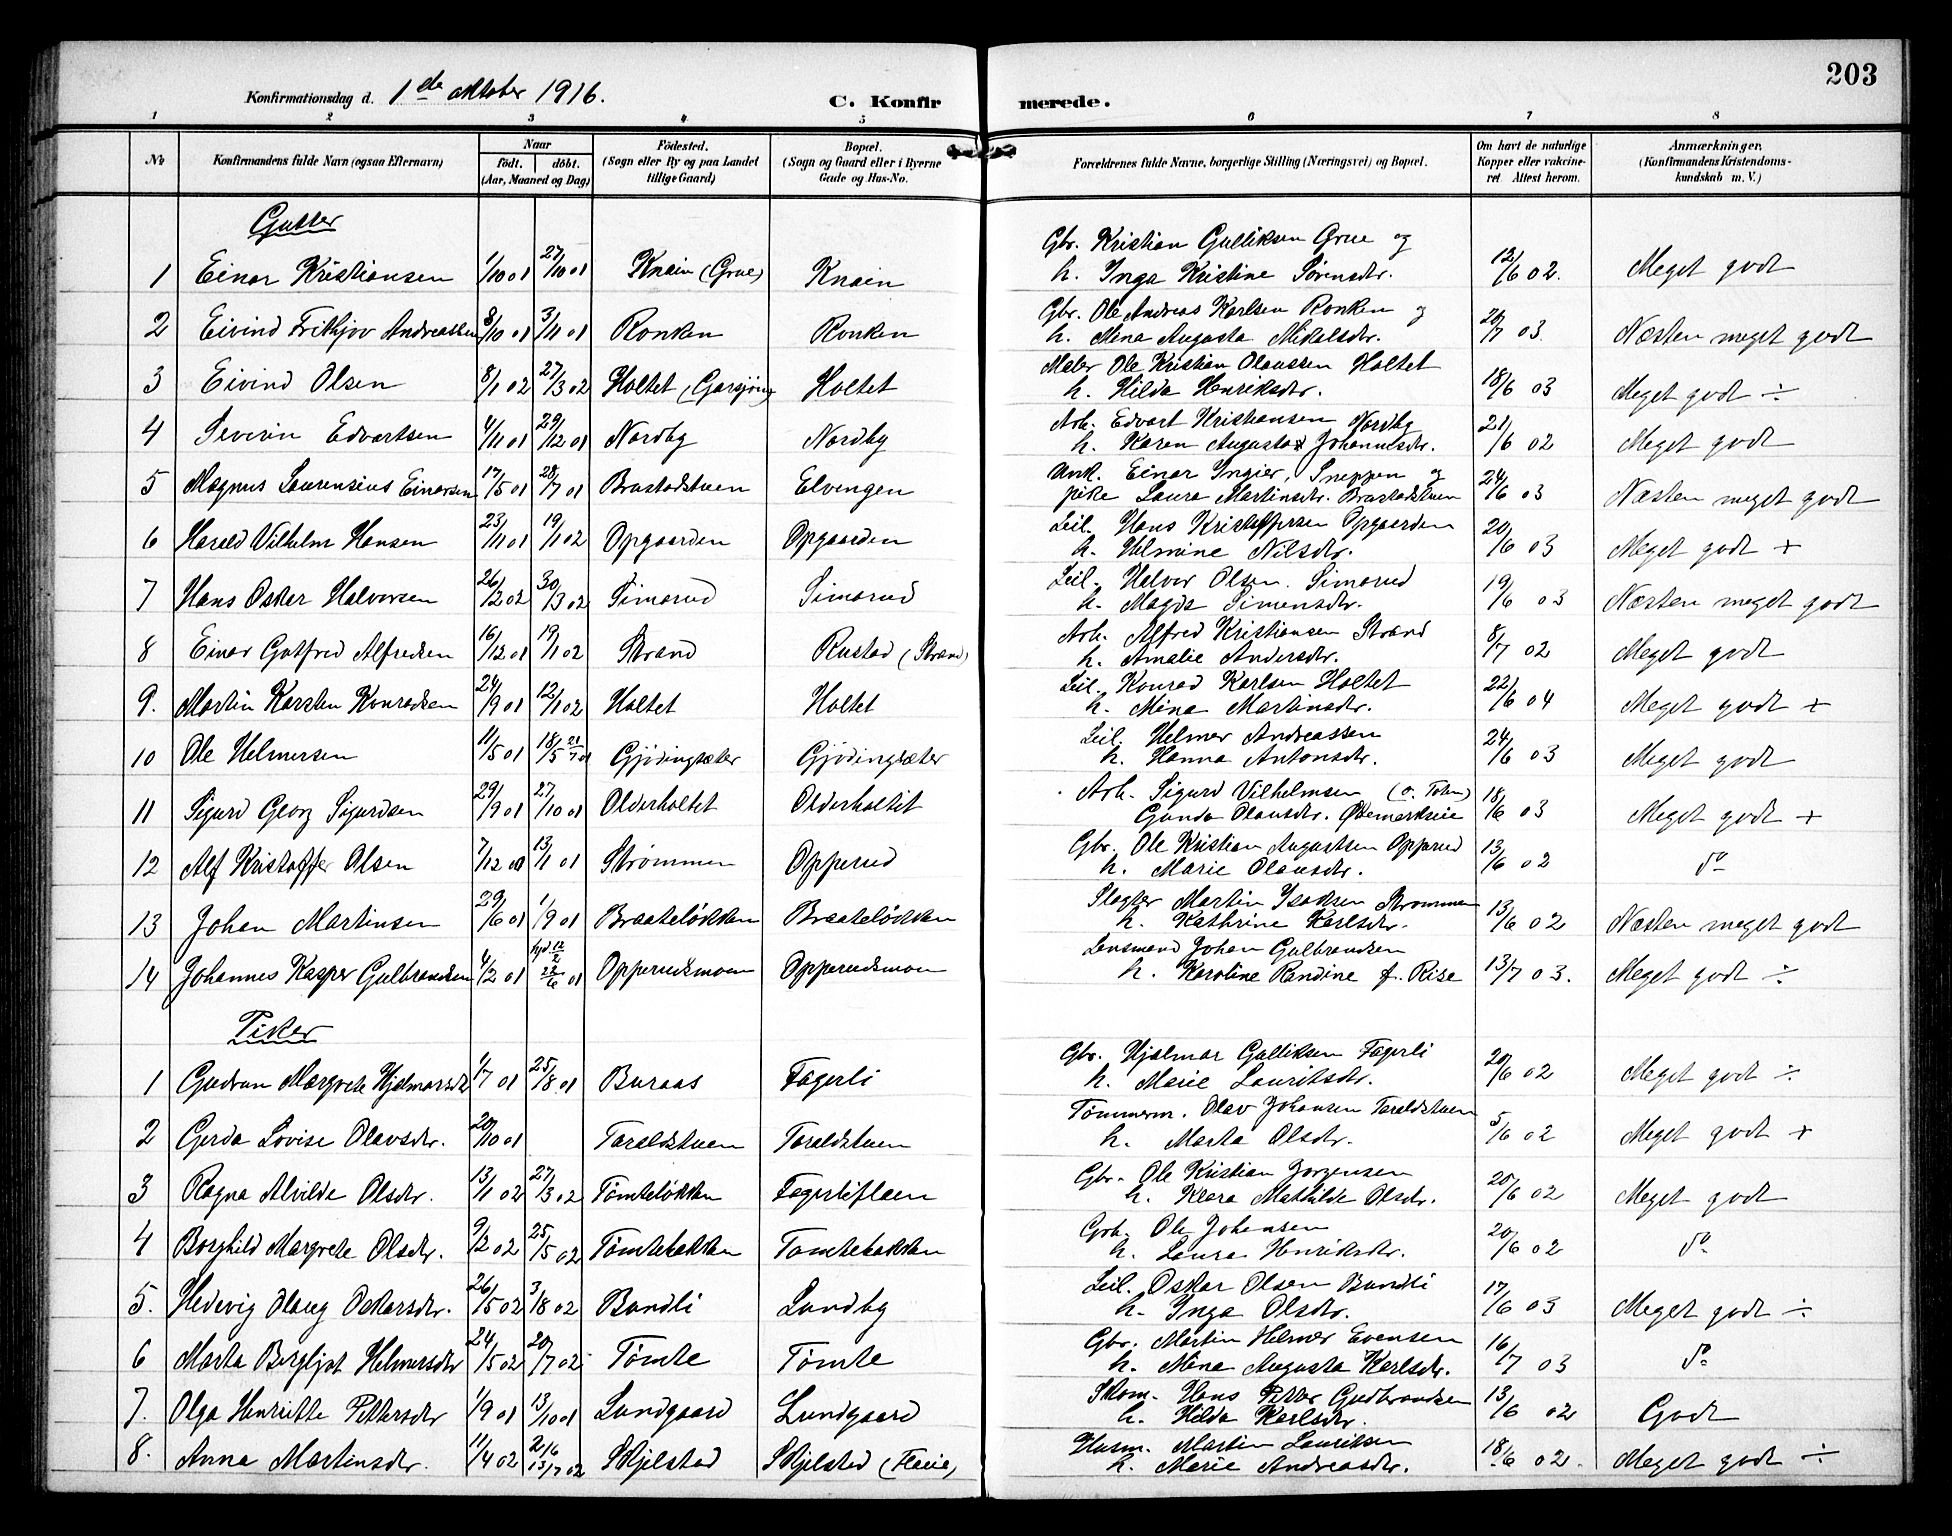 203
Konfirmationsdag d. 1ste oktober 1916. C. Konfirmerede.
1 2 3 4 5 6 7 8
No Konfirmandens fulde Navn (ogsaa Efternavn) Naar født. døbt. (Aar, Maaned og Dag) Fødested. (Sogn eller By og paa Landet tillige Gaard) Bopæl. (Sogn og Gaard eller i Byerne Gade og Hus-No. Forældrenes fulde Navne, borgerlige Stilling (Næringsvei) og Bopæl. Om havt de naturlige Kopper eller vakcineret Attest herom. Anmærkninger. (Konfirmandens Kristendomskundskab m. V.)
Gutter
1 Einar Kristiansen 1/10 01 27/10 01 Knain (Grue) Knain Gbr. Kristian Gulliksen Grue og
h. Inga Kristine Sørensdtr. 12/6 02. Meget godt
2 Eivind Frithjov Andreassen 8/10 01 3/11 01 Ronken Ronken Gbr. Ole Andreas Karlsen Ronken og
h. Mina Augusta Mikalsdtr. 20/7 03. Næsten meget godt
3 Eivind Olsen 8/1 02 27/3 02 Holtet (Garsjøen) Holtet Maler Ole Kristian Olaussen Holtet
h. Hilda Henriksdtr. 18/6 03 Meget godt ÷
4 Severin Edvartsen 4/11 01 29/12 01 Nordby Nordby Arb. Edvart Kristiansen Nordby
h. Karen Augusta Johannesdtr. 21/6 02 Meget godt
5 Magnus Laurensius Einarsen 17/5 01 28/7 01 Brastadstuen Elvengen Unk. Einar Ingier, Sneppen og
pike Laura Martinsdtr. Brastadstuen 24/6 03 Næsten meget godt
6 Harald Vilhelm Hansen 23/11 01 19/1 02 Opgaarden Opgaarden Leil. Hans Kristoffersen Opgaarden
h. Helmine Nilsdtr. 20/6 03 Meget godt +
7 Hans Oskar Halvorsen 26/2 02 30/3 02 Simarud Simarud Leil. Halvor Olsen Simarud
h. Magda Simensdtr. 19/6 03 Næsten meget godt
8 Einar Gotfred Alfredsen 16/12 01 19/1 02 Strand Rustad (Strand) Arb. Alfred Kristiansen Strand
h. Amalie Andersdtr. 8/7 02 Meget godt
9. Martin Karsten Konradsen 24/9 01 12/1 02 Holtet Holtet Leil. Konrad Karlsen Holtet
h. Mina Martinsdtr. 22/6 04 Meget godt +
10 Ole Helmersen 11/5 01 18/5 21/7 01 Gjødingsæter Gjødingsæter Leil. Helmer Andreassen
h. Hanna Antonsdtr. 24/6 03 Meget godt
11 Sigurd Georg Sigurdsen 29/9 01 27/10 01 Olderholtet Olderholtet Arb. Sigurd Vilhelmsen (Ø. Toten)
Gunda Olausdtr. Ødemarkseie 18/6 03 Meget godt +
12 Alf Kristoffer Olsen 7/12 00 13/1 01 Strømmen Opperud Gbr. Ole Kristian Augustsen Opperud
h. Marie Olausdtr. 13/6 02 do
13 Johan Martinsen 29/6 01 1/9 01 Braateløkken Braateløkken Slagter Martin Isaksen Strømmen
h. Kathrine Karlsdtr. 13/6 02 Næsten meget godt
14 Johannes Kasper Gulbrandsen 4/2 01 hjd 12/2 23/6 01 Opperudsmoen Opperudsmoen Lensmand Johan Gulbrandsen
h. Karoline Randine f. Rise 13/7 03. Meget godt ÷
Piker
1 Gudrun Margrete Hjalmarsdtr 1/7 01 25/8 01 Buraas Fagerli Gbr. Hjalmar Gulliksen Fagerli
h. Marie Lauritsdtr. 20/6 02 Meget godt ÷
2 Gerda Lovise Olavsdtr. 20/10 01 Taraldstuen Taraldstuen Tømmerm. Olav Johansen Taraldstuen
h. Marta Olsdtr. 5/6 02 Meget godt +
3 Ragna Alvilde Olsdtr. 13/1 02 27/3 02 Tømteløkken Fagerliflaen Gbr. Ole Kristian Jørgensen
h. Klara Mathilde Olsdtr. 20/6 02 Meget godt
4 Borghild Margrete Olsdtr. 9/2 02 25/5 02 Tømtebakken Tomtebakken Grb. Ole Johansen
h. Laura Henriksdtr. 20/6 02 do
5. Hedevig Olaug Oskarsdtr. 26/5 02 3/8 02 Bundli Lundby Leil. Oskar Olsen Bundli
h. Inga Olsdtr. 17/6 03 Meget godt ÷
6 Marta Bergljot Helmersdtr 24/5 02 20/7 02 Tømte Tømte Gbr. Martin Helmer Evensen
h. Mina Augusta Karlsdtr. 16/7 03 do
7. Olga Henriette Pettersdtr 1/9 01 13/10 01 Lundgaard Lundgaard Skom. Hans Petter Gudbrandsen
h. Hilda Karlsdtr. 13/6 02 Godt
8. Anna Martinsdtr. 11/4 02 2/6 13/7 02 Skjelstad Skjelstad (Flaeie) Husm. Martin Lauritsen
h. Marie Andreasdtr. 18/6 02. Meget godt ÷